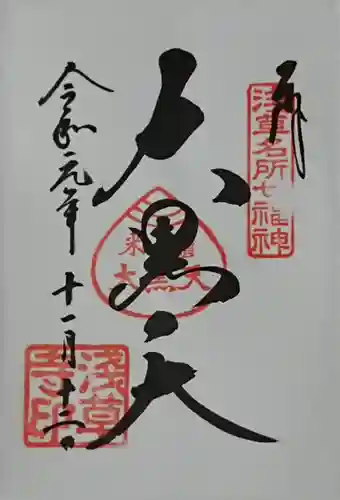 奉拝
浅草名所七福神
大黒天
米櫃
大黒天
令和元年十一月十二日
浅草寺印